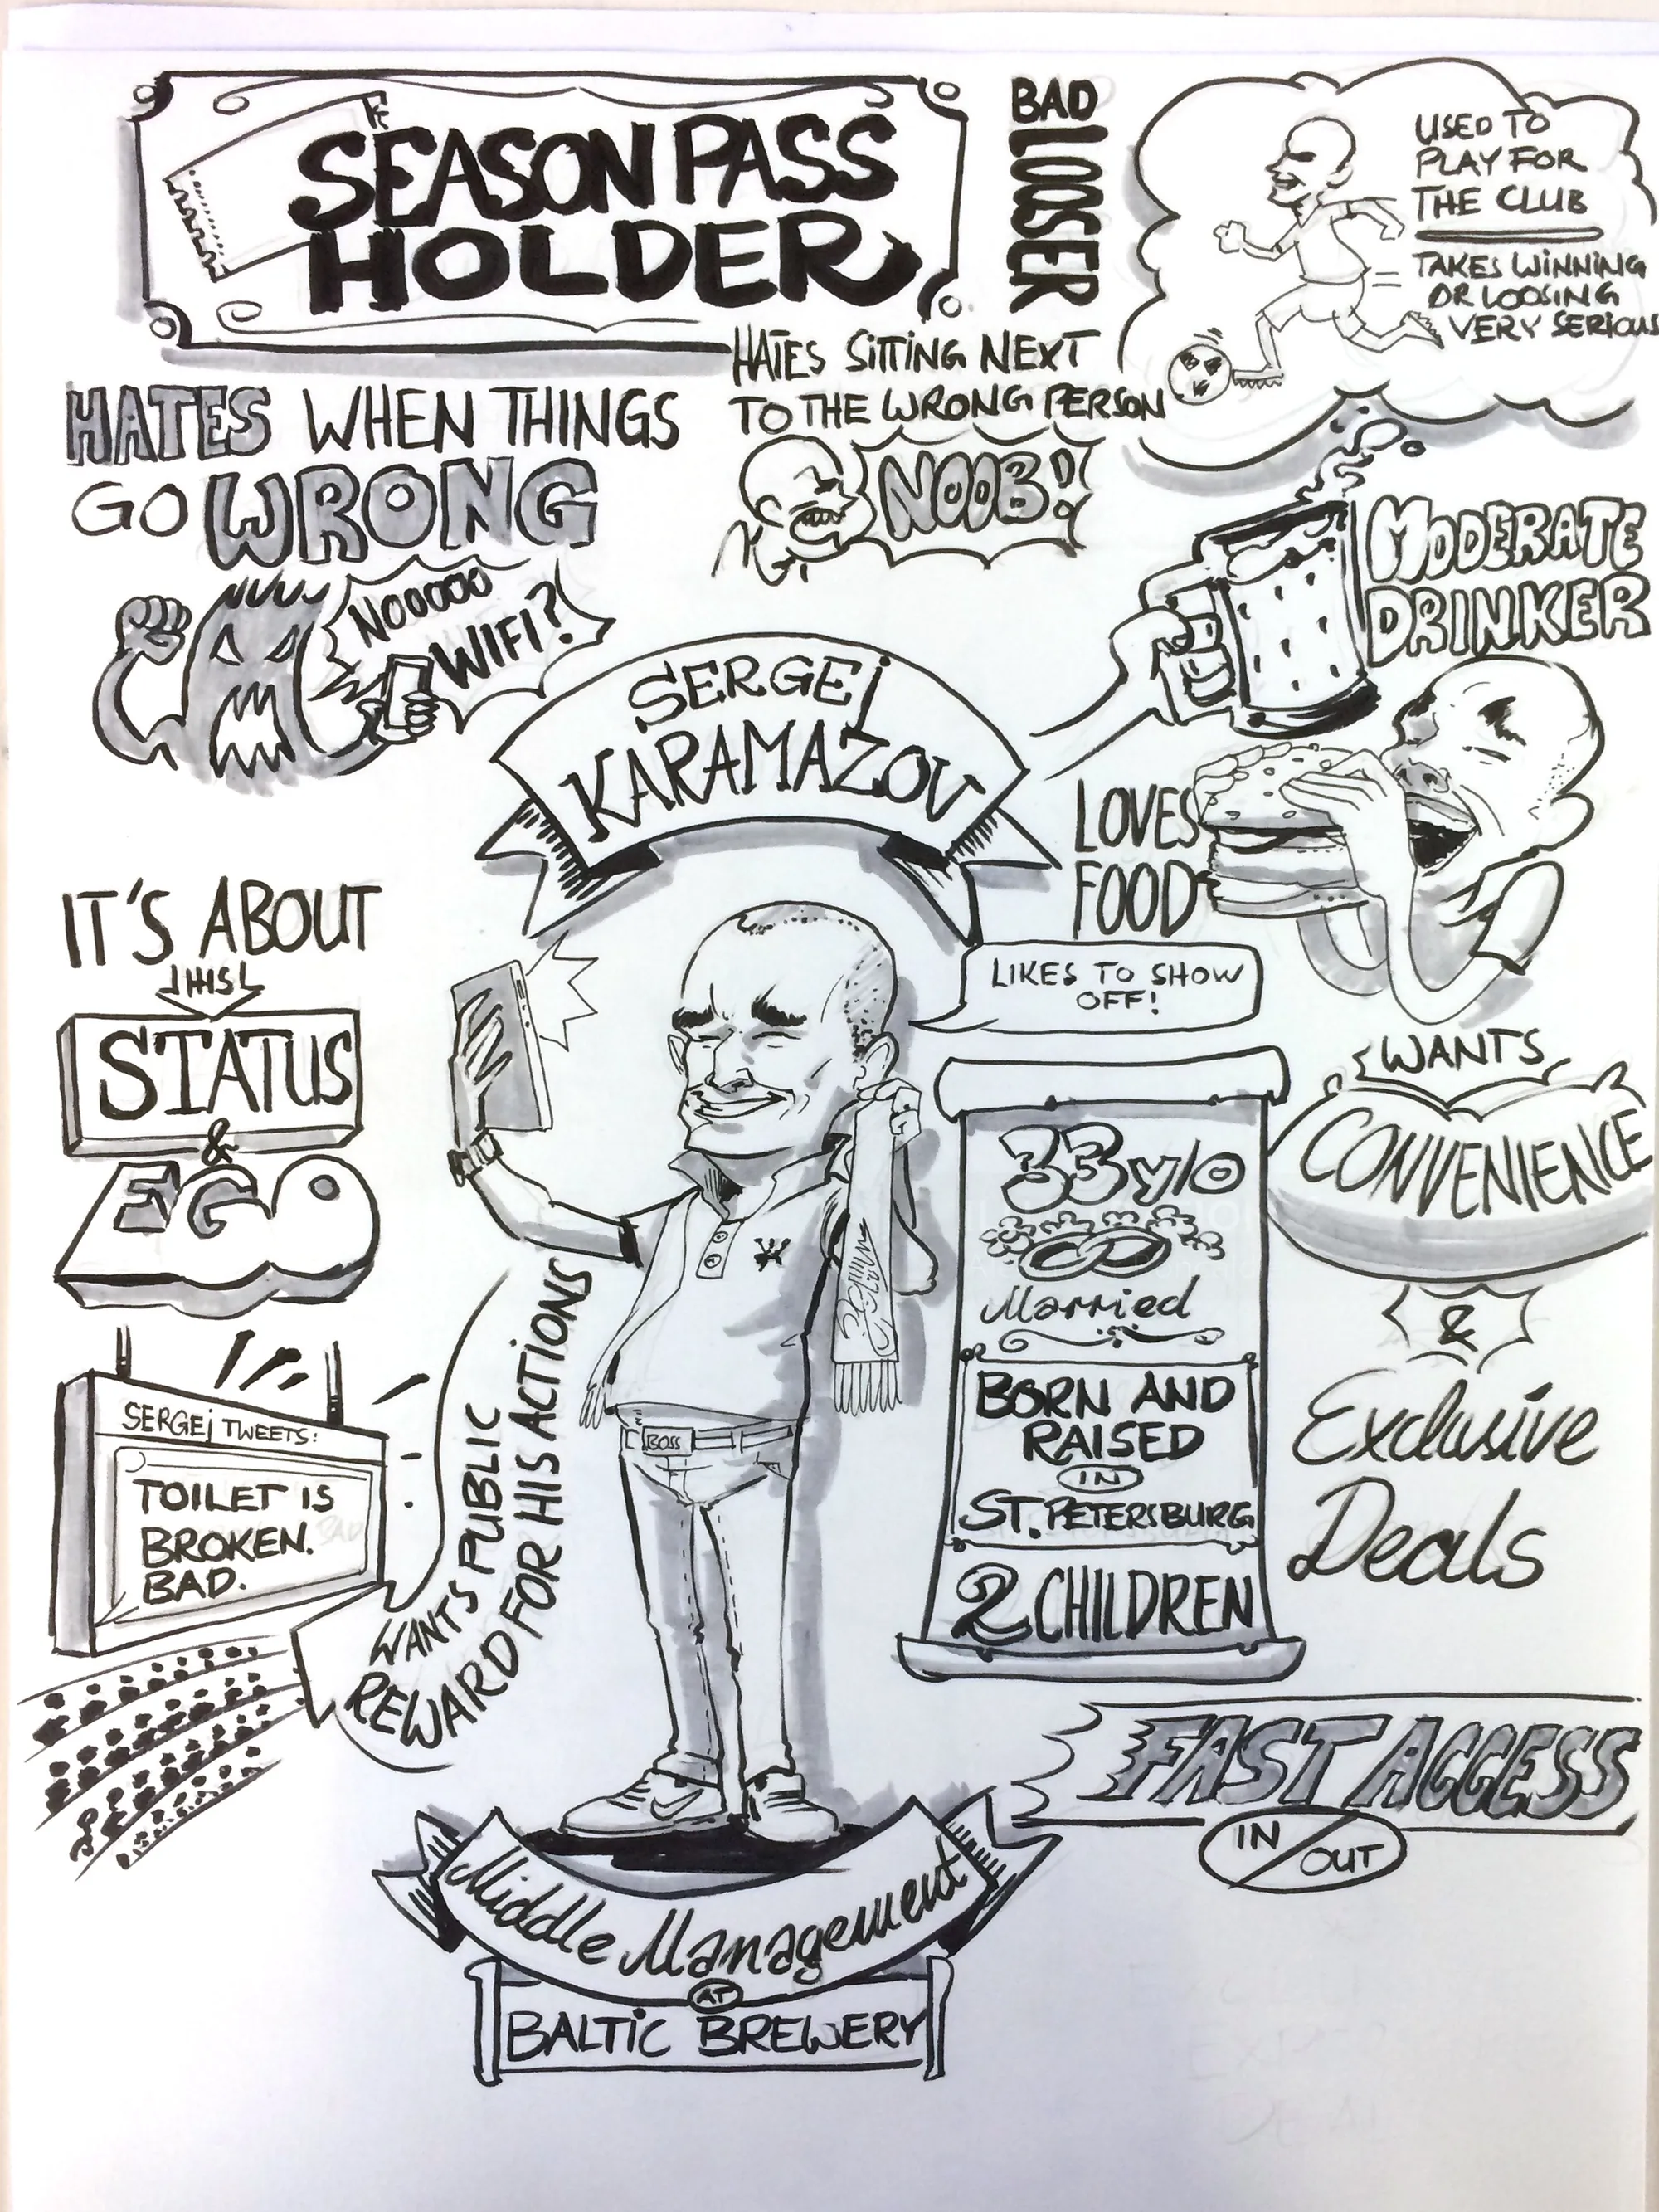 SEASON PASS
HOLDER
BAD
LOOSER
USED TO
PLAY FOR
THE CLUB
TAKES WINNING
OR LOOSING
VERY SERIOUS
HATES SITTING NEXT
TO THE WRONG PERSON
NOOB!
HATES WHEN THINGS
GO WRONG
NOOOOO
WIFI?
MODERATE
DRINKER
SERGEj
KARAMAZOV
LOVES
FOOD
LIKES TO SHOW
OFF!
IT'S ABOUT
THIS
STATUS
&
EGO
WANTS
CONVENIENCE
&
Exclusive
Deals
33 y/o
Married
BORN AND
RAISED
IN
ST. PETERSBURG
2 CHILDREN
BOSS
SERGEj TWEETS:
TOILET IS
BROKEN.
BAD.
WANTS PUBLIC
REWARD FOR HIS ACTIONS
FAST ACCESS
IN/OUT
Middle Management
AT
BALTIC BREWERY